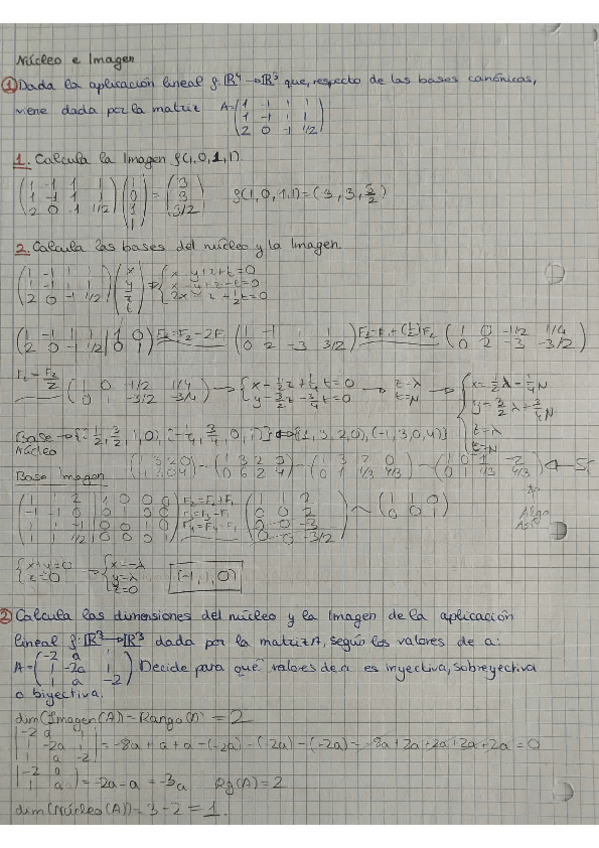 Núcleo e Imagen
① Dada la aplicación lineal f: ℝ⁴→ℝ³ que, respecto de las bases canónicas,
viene dada por la matriz A=(1 -1 1 1
1 -1 1 1
2 0 -1 1/2)
1. Calcula la Imagen f(1,0,1,1)
(1 -1 1 1 | 1 -1 1 1 | 2 0 -1 1/2)(1 0 1 1) = (3 3 3/2) f(1,0,1,1)=(3,3,3/2)
2. Calcula las bases del núcleo y la Imagen
(1 -1 1 1 | 1 -1 1 1 | 2 0 -1 1/2)(x y z t) {x-y+z+t=0 x-y+z+t=0 2x-z+1/2t=0
(1 -1 1 1 | 2 0 -1 1/2 | 1 0 | 0 1) F₂=F₂-2F₁ (1 -1 1 1 | 0 2 -3 -3/2) (1 0 -1/2 1/4 | 0 2 -3 -3/2)
F₂=F₂/2 (1 0 -1/2 1/4 | 0 1 -3/2 -3/4) → {x-1/2z+1/4t=0 y-3/2z-3/4t=0 → z=λ t=μ → {x=1/2λ-1/4μ y=3/2λ+3/4μ z=λ t=μ
Base Núcleo → {(1/2, 3/2, 1, 0), (-1/4, 3/4, 0, 1)} {(1,3,2,0), (-1,3,0,4)}
Base Imagen
{x+y=0 z=0 → {x=-λ y=λ z=0 (-1,1,0)
② Calcula las dimensiones del núcleo y la Imagen de la aplicación
lineal f: ℝ³→ℝ³ dada por la matriz A, según los valores de a:
A=(-2 a 1 | 1 -2a 1 | 1 a -2) Decide para qué valores de a es inyectiva, sobreyectiva
o biyectiva.
dim(Imagen(A))=Rango(A) = 2
|-2 a 1 | 1 -2a 1 | 1 a -2| = -8a+a+a-(-2a)-(-2a)-(-2a)=-8a+2a+2a+2a+2a=0
|-2 a | 1 a| = -2a-a=-3a Rg(A)=2
dim(Núcleo(A))=3-2=1.